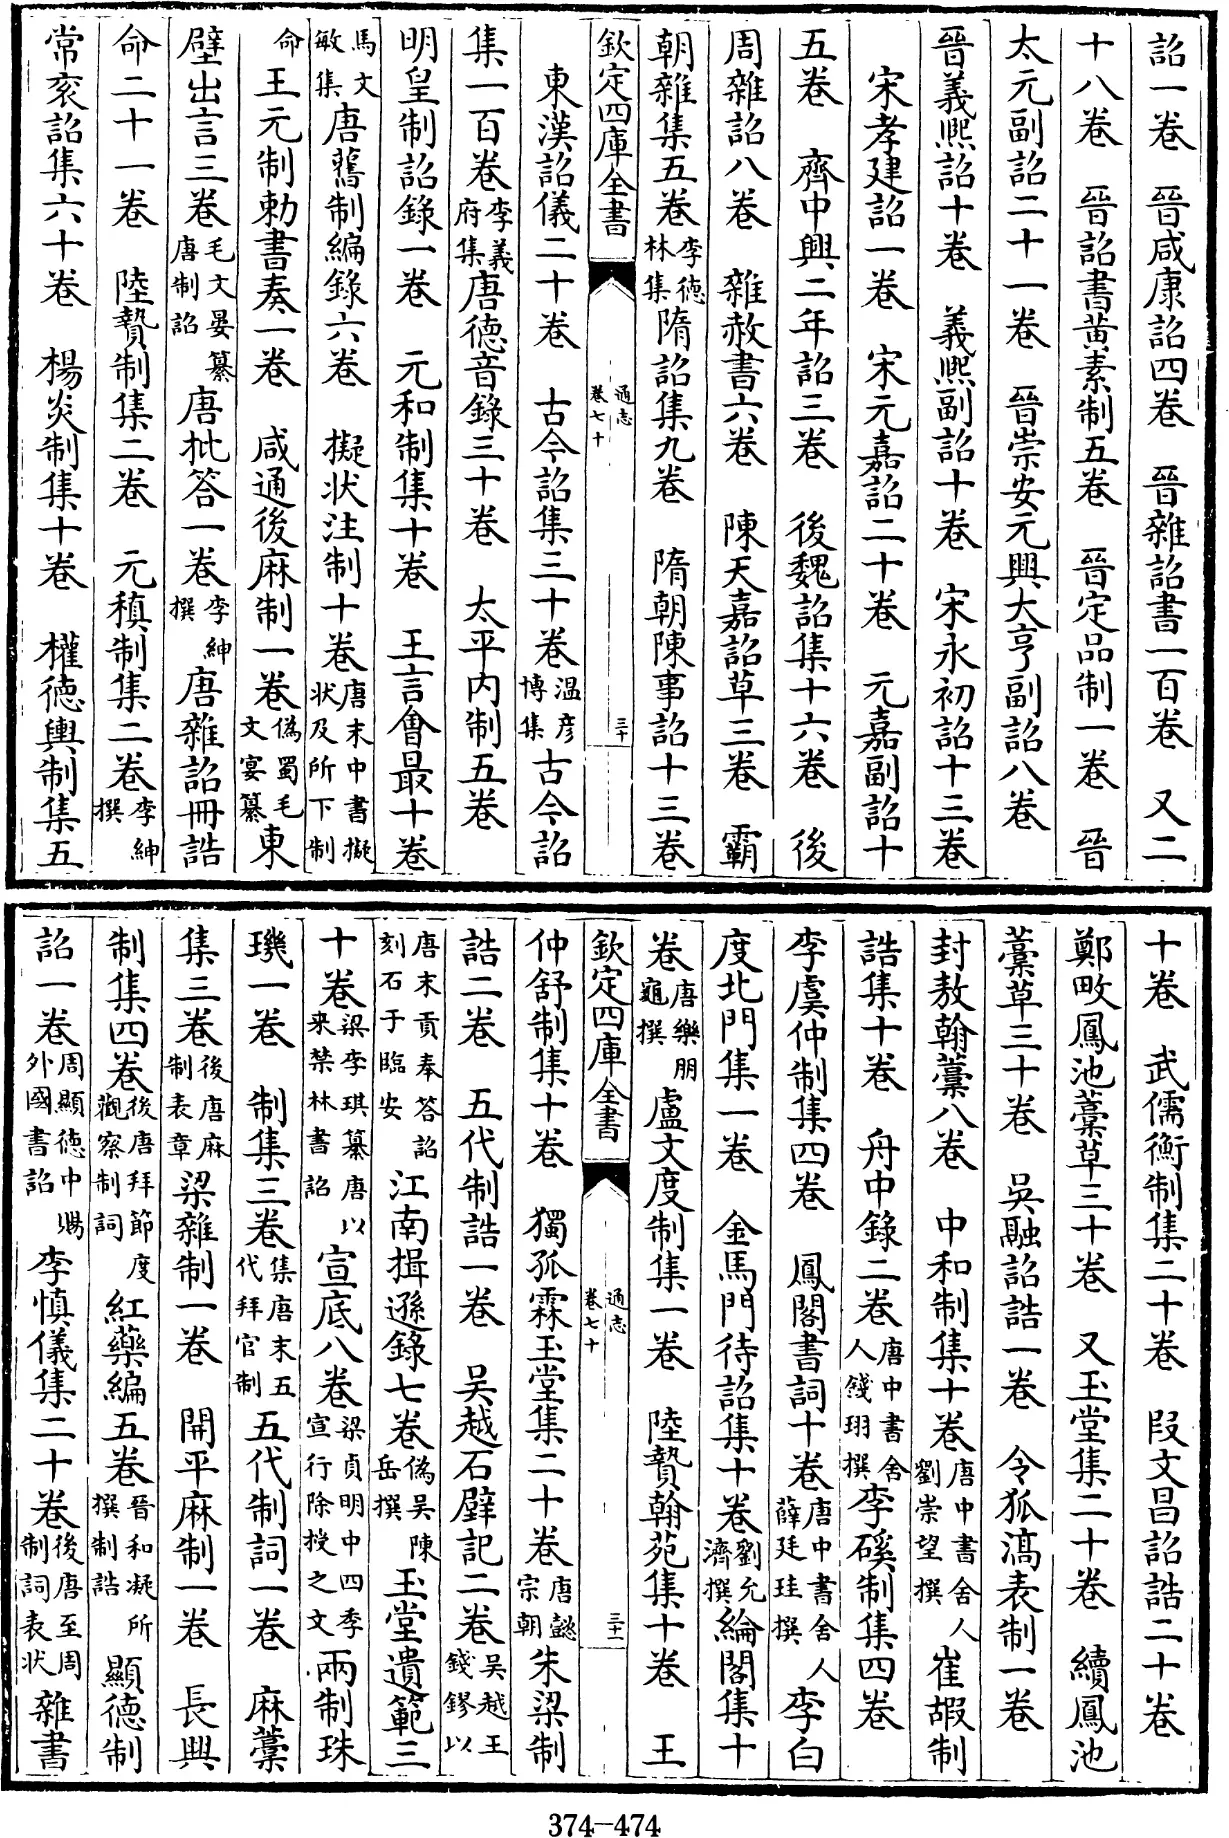 詔一卷　晉咸康詔四卷　晉雜詔書一百卷　又二
十八卷　晉詔書黃素制五卷　晉定品制一卷　晉
太元副詔二十一卷　晉崇安元興大亨副詔八卷
晉義熙詔十卷　義熙副詔十卷　宋永初詔十三卷
宋孝建詔一卷　宋元嘉詔二十卷　元嘉副詔十
五卷　齊中興二年詔三卷　後魏詔集十六卷　後
周雜詔八卷　雜赦書六卷　陳天嘉詔草三卷　霸
朝雜集五卷李德林集隋詔集九卷　隋朝陳事詔十三卷
欽定四庫全書　通志卷七十　三十
東漢詔儀二十卷　古今詔集三十卷溫彦博集古今詔
集一百卷李義府集唐德音錄三十卷　太平内制五卷
明皇制詔錄一卷　元和制集十卷　王言會最十卷
馬文敏集唐舊制編錄六卷　擬狀注制十卷唐末中書擬狀及所下制
命王元制勅書奏一卷　咸通後麻制一卷偽蜀毛文宴纂東
壁出言三卷毛文晏纂唐制詔唐批答一卷李紳撰唐雜詔冊誥
命二十一卷　陸贄制集二卷　元稹制集二卷李紳撰
常衮詔集六十卷　楊炎制集十卷　權德輿制集五
十卷　武儒衡制集二十卷　段文昌詔誥二十卷
鄭畋鳳池藁草三十卷　又玉堂集二十卷　續鳳池
藁草三十卷　吳融詔誥一卷　令狐滈表制一卷
封敖翰藁八卷　中和制集十卷唐中書舍人劉崇望撰崔嘏制
誥集十卷　舟中錄二卷唐中書舍人錢珝撰李磎制集四卷
李虞仲制集四卷　鳳閣書詞十卷唐中書舍人薛廷珪撰李白
度北門集一卷　金馬門待詔集十卷劉允濟撰綸閣集十
卷唐樂朋龜撰盧文度制集一卷　陸贄翰苑集十卷　王
欽定四庫全書　通志卷七十　三十一
仲舒制集十卷　獨孤霖玉堂集二十卷唐懿宗朝朱梁制
誥二卷　五代制誥一卷　吳越石壁記二卷吳越王錢鏐以
唐末貢奉答詔刻石于臨安江南揖遜錄七卷偽吳陳岳撰玉堂遺範三
十卷梁李琪纂唐以来禁林書詔宣底八卷梁貞明中四季宣行除授之文兩制珠
璣一卷　制集三卷集唐末五代拜官制五代制詞一卷　麻藁
集三卷後唐麻制表章梁雜制一卷　開平麻制一卷　長興
制集四卷後唐拜節度觀察制詞紅藥編五卷晉和凝所撰制誥顯德制
詔一卷周顯德中賜外國書詔李慎儀集二十卷後唐至周制詞表狀雜書
374-474